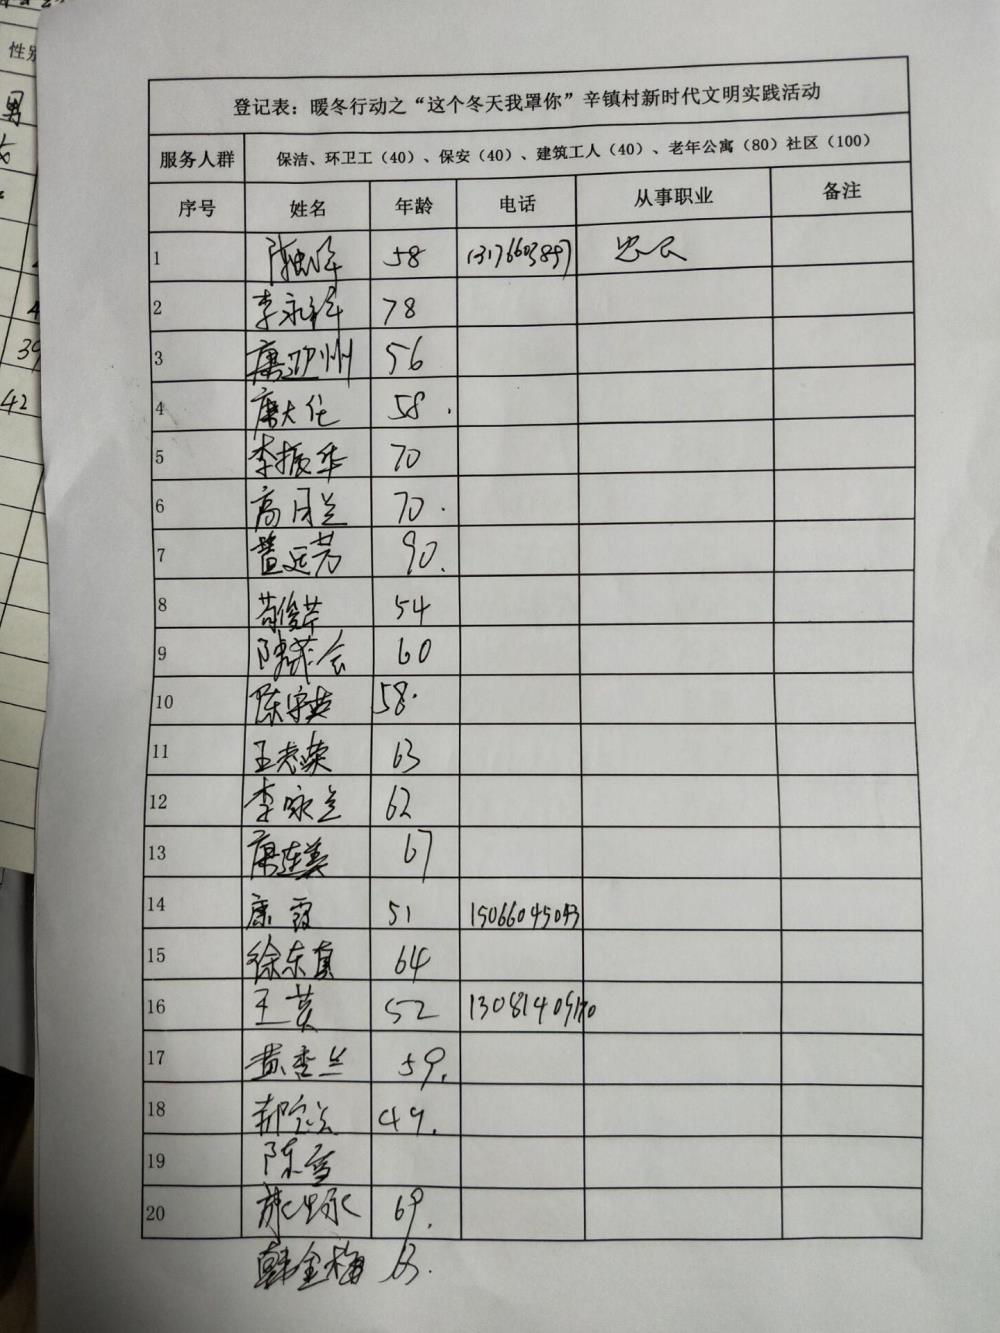 性别
男
39
42
登记表：暖冬行动之“这个冬天我罩你”辛镇村新时代文明实践活动
服务人群 保洁、环卫工（40）、保安（40）、建筑工人（40）、老年公寓（80）社区（100）
序号 姓名 年龄 电话 从事职业 备注
1 58 13176603897
2 李永祥 78
3 56
4 唐大仕 58.
5 李振华 70
6 高月兰 70.
7 90.
8 苟俊芹 54
9 60
10 陈宇英 58.
11 王志荣 63
12 李咏兰 62
13 唐连美 67
14 康霞 51 15066045043
15 徐东真 64
16 王英 52
17 黄杏兰 59.
18 49.
19 陈雪
20 69.
韩金梅 63.